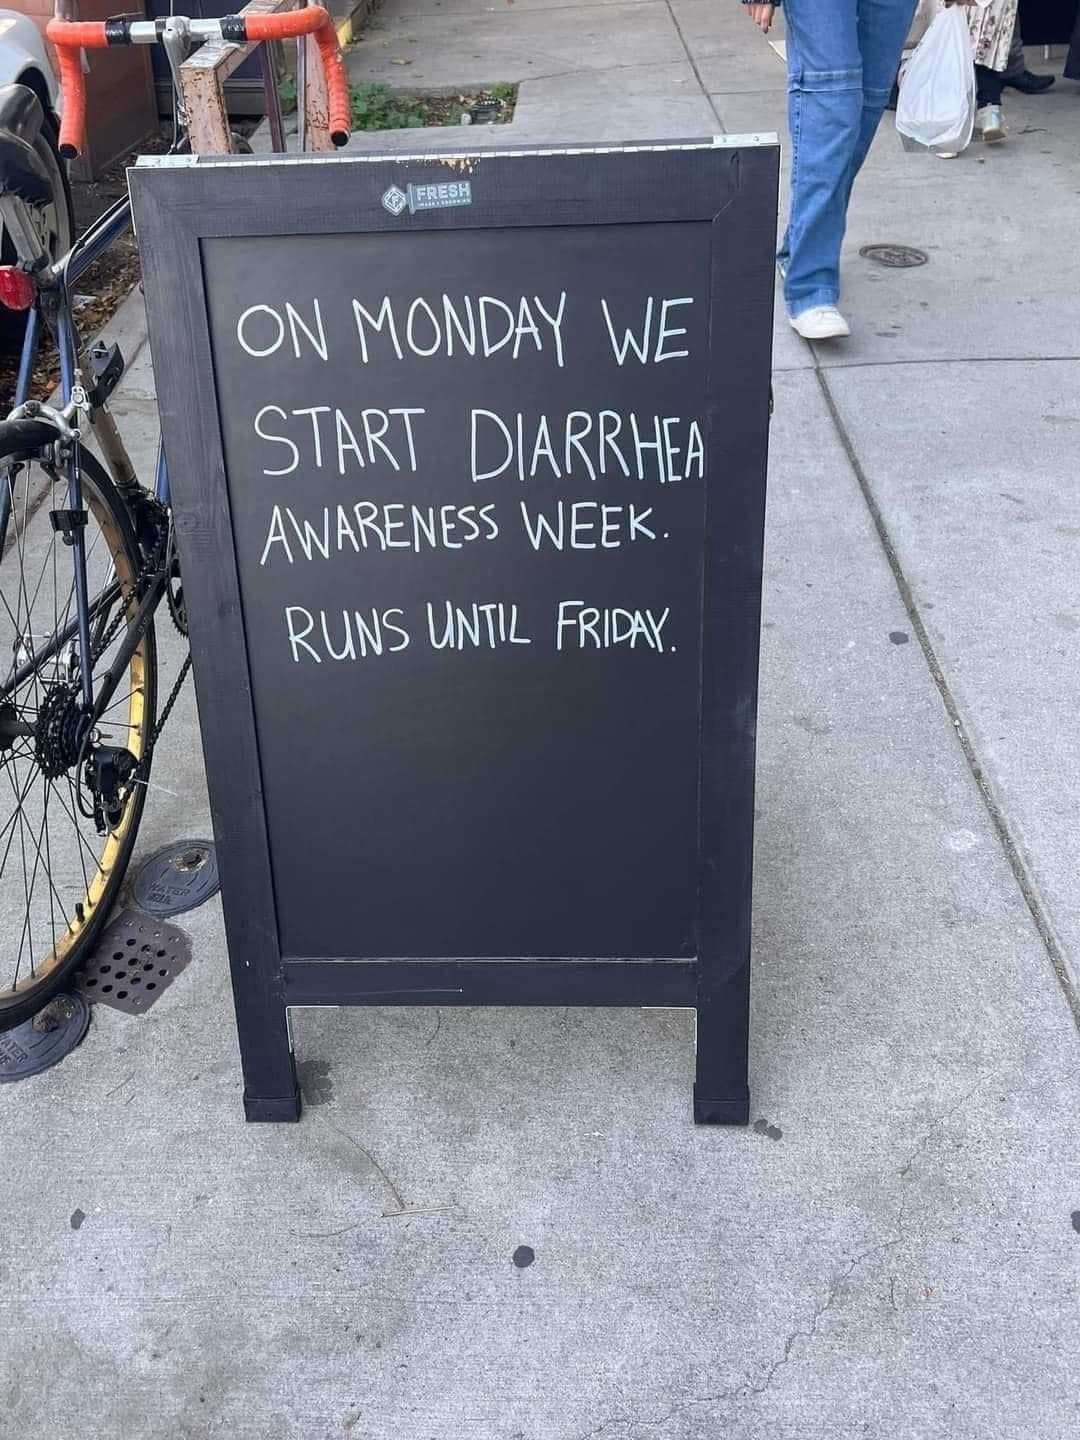 FRESH
ON MONDAY WE
START DIARRHEA
AWARENESS WEEK.
RUNS UNTIL FRIDAY.
WATER
WATER